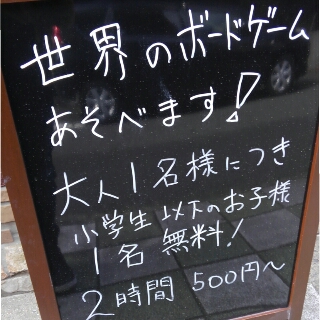 世界のボードゲーム
あそべます!
大人1名様につき
小学生以下のお子様
1名 無料!
2時間 500円~